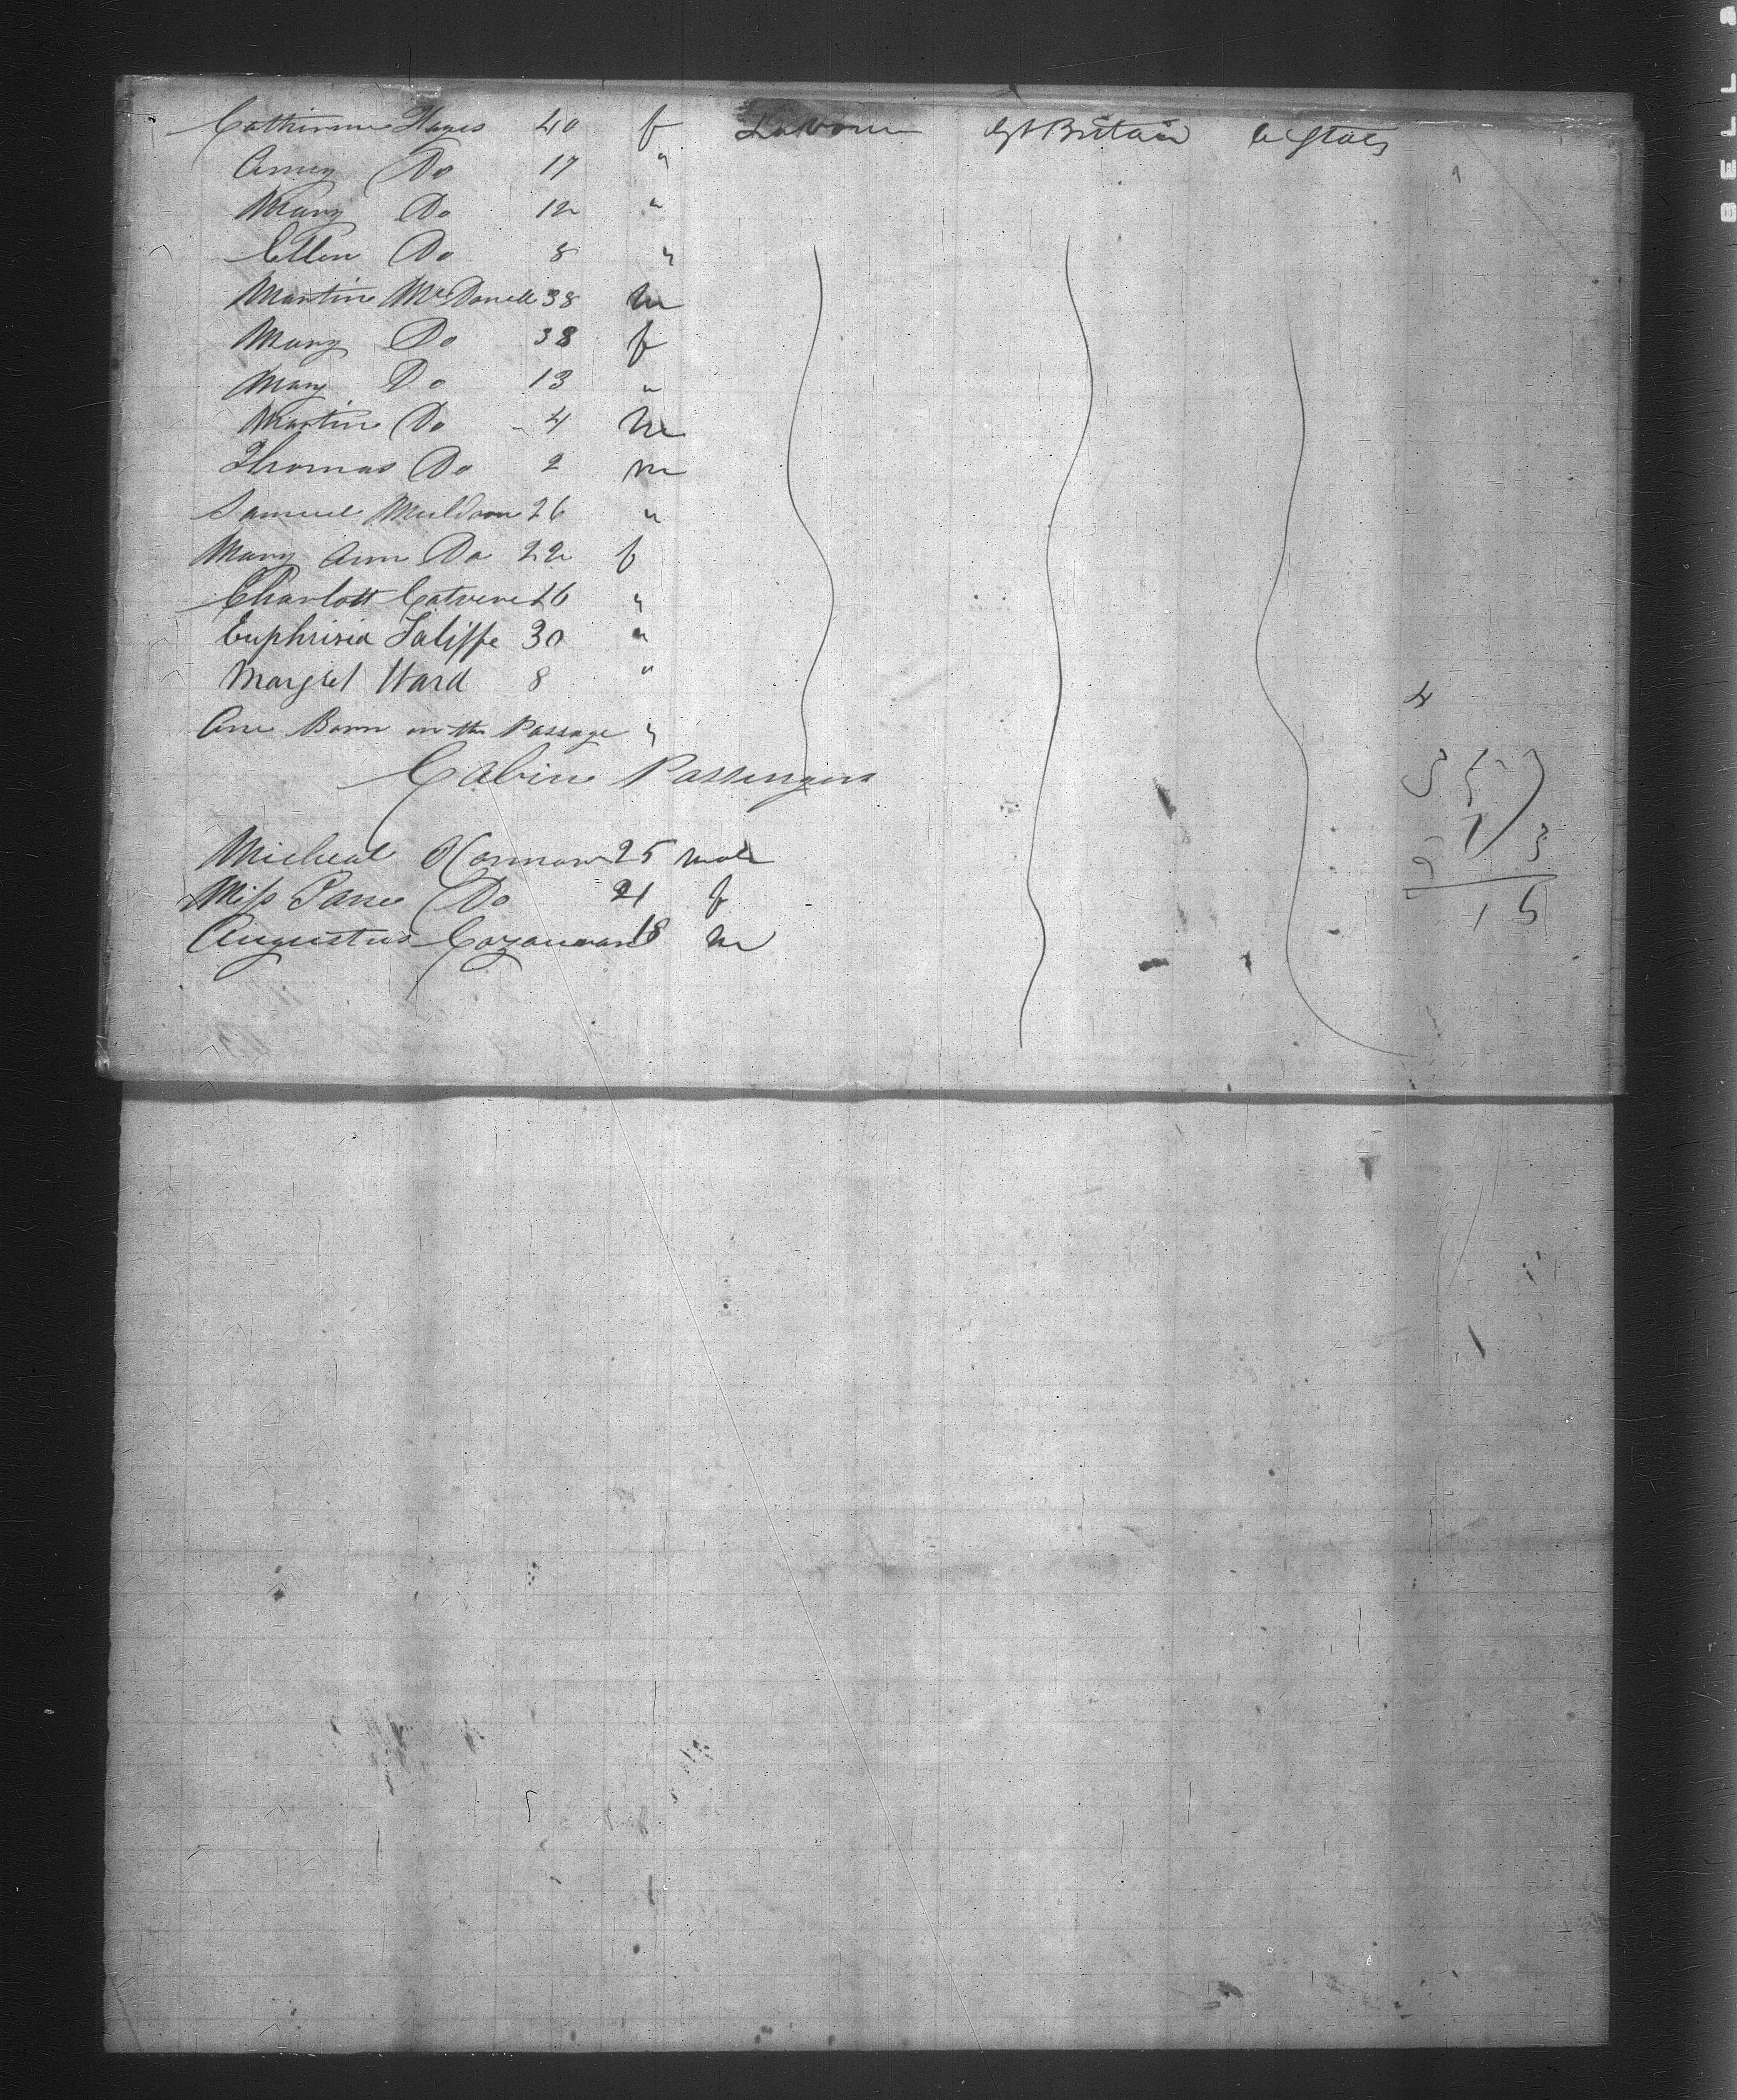 Catherine Hayes 40 f Labour Gt Britain U States
Do 17 "
Mary Do 12 "
Ellen Do 8 "
Martin McDonell 38 m
Mary Do 38 f
Mary Do 13 "
Martin Do 4 m
Thomas Do 2 m
Samuel Muldoon 26 "
Mary Ann Do 22 f
Charlott "
Euphrisia Taliffe 30 "
Margret Ward 8 "
One Born on the Passage "
Cabin Passengers
Micheal OConnor 25 male
Miss Do 21 f
Augustus 18 m
4
15
BELL